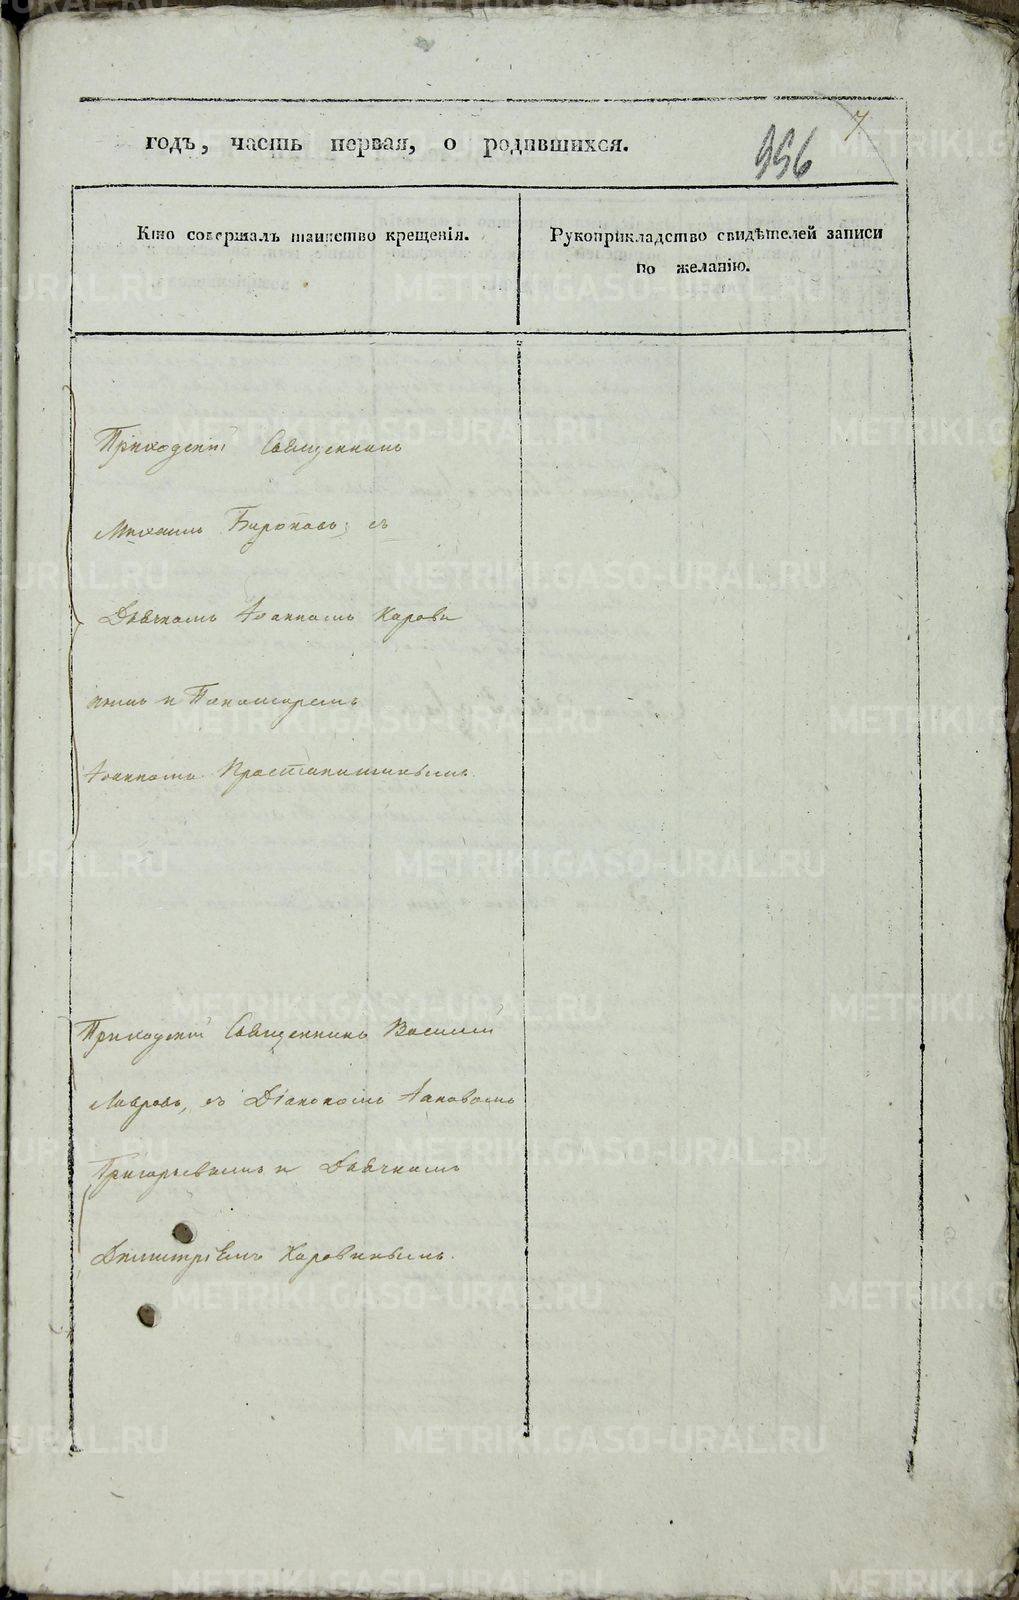 годъ, часть первая, о родившихся.
996
7
Кто совершалъ таинство крещенія.
Рукоприкладство свидѣтелей записи
по желанію.
Приходскій Священникъ
Михаилъ Бирюковъ, съ
Дьячкомъ Іоанномъ Корови
нымъ и Пономаремъ
Іоанномъ
Приходскій Священникъ Василій
Лавровъ, съ Діакономъ Іаковомъ
Григорьевымъ и Дьячкомъ
Димитріемъ Коровинымъ.
METRIKI.GASO-URAL.RU